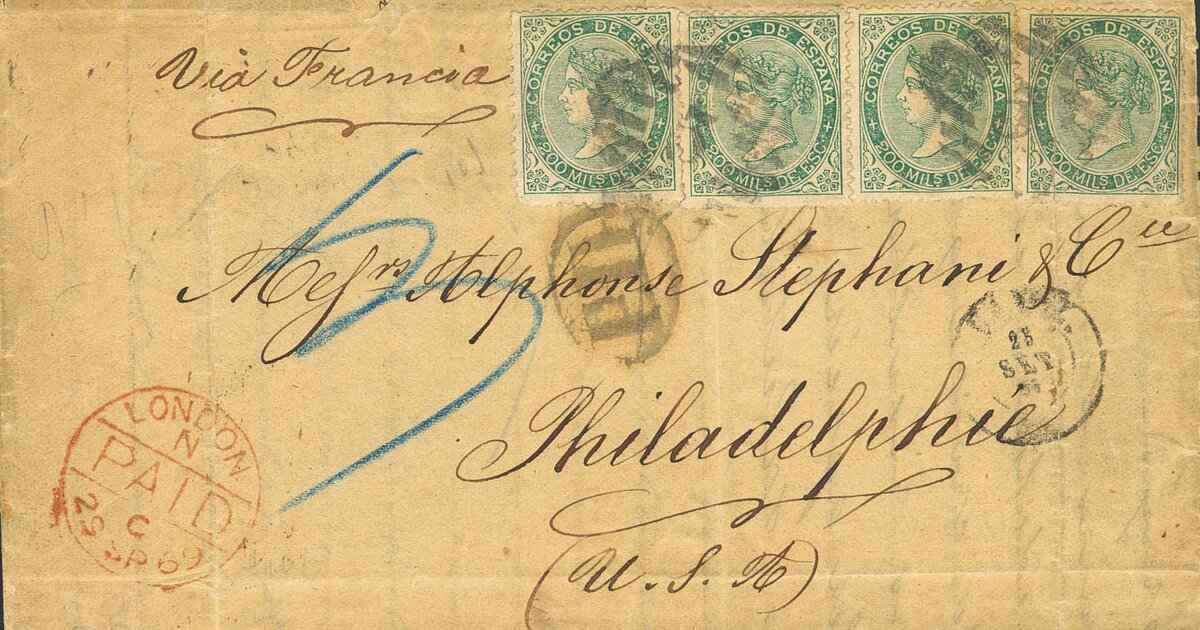 Via Francia
CORREOS DE ESPAÑA
200 MILS DE ESCº
CORREOS DE ESPAÑA
200 MILS DE ESCº
CORREOS DE ESPAÑA
200 MILS DE ESCº
CORREOS DE ESPAÑA
200 MILS DE ESCº
Messrs Alphonse Stephani & Cie
Philadelphie
(U.S.A)
25
SET
LONDON
N
PAID
C
29 SP 69